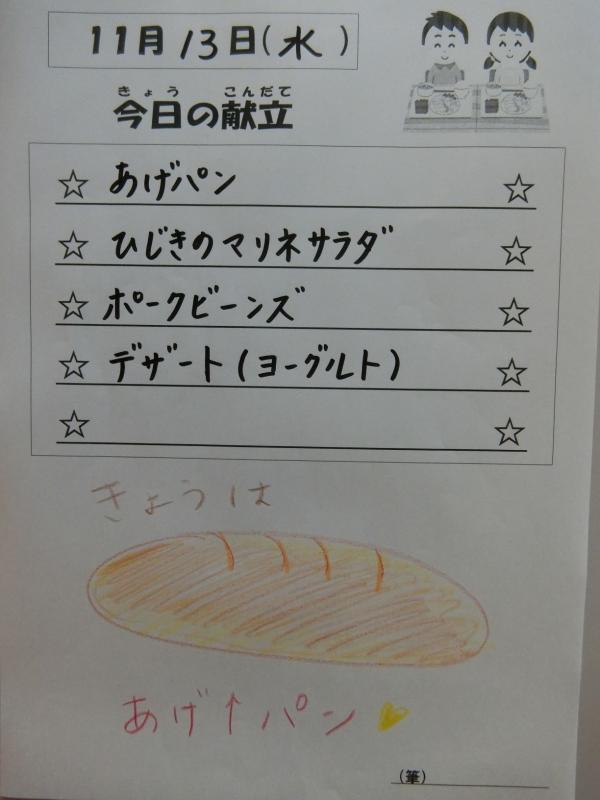 11月13日(水)
きょう こんだて
今日の献立
☆ あげパン ☆
☆ ひじきのマリネサラダ ☆
☆ ポークビーンズ ☆
☆ デザート(ヨーグルト) ☆
☆ ☆
きょうは
あげ↑パン
(筆)